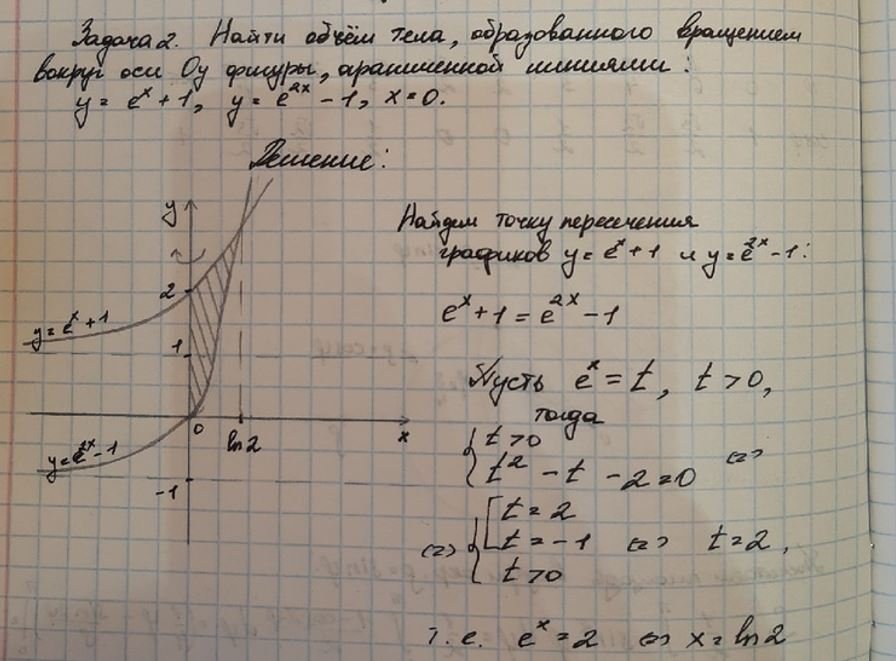 Задача 2. Найти объём тела, образованного вращением
вокруг оси Oy фигуры, ограниченной линиями:
y = e^x + 1, y = e^{2x} - 1, x = 0.
Решение:
y
2
y = e^x + 1
1
0
ln 2
x
y = e^{2x} - 1
-1
Найдем точку пересечения
графиков y = e^x + 1 и y = e^{2x} - 1:
e^x + 1 = e^{2x} - 1
Пусть e^x = t, t > 0,
тогда
{ t > 0
{ t² - t - 2 = 0 <=>
[ t = 2
<=> { [ t = -1 <=> t = 2,
{ t > 0
т. е. e^x = 2 <=> x = ln 2